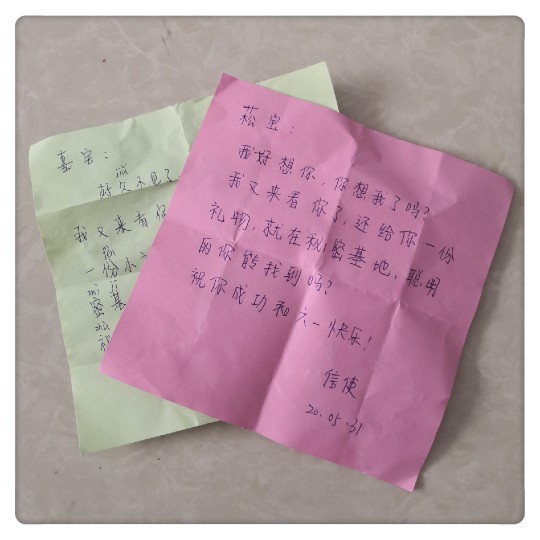 嘉宝:
jiǔ
好久不见了
我又来看你
一份小
mì
密基
zhù
祝
菘宝:
我好想你,你想我了吗?
我又来看你了,还给你一份
礼物,就在秘密基地,聪明
的你能找到吗?
祝你成功和六一快乐!
信使
20.05.31